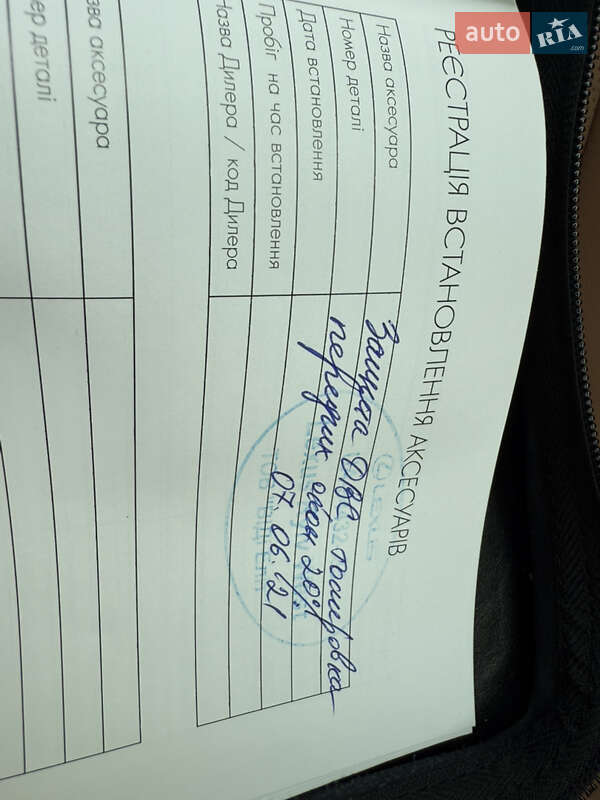 auto RIA .com
РЕЄСТРАЦІЯ ВСТАНОВЛЕННЯ АКСЕСУАРІВ
Назва аксесуара
Номер деталі
Дата встановлення
Пробіг на час встановлення
Назва Дилера / код Дилера
Защита ДВС, тонировка
передних окон 20%
07.06.21
Lexus
зва аксесуара
мер деталі